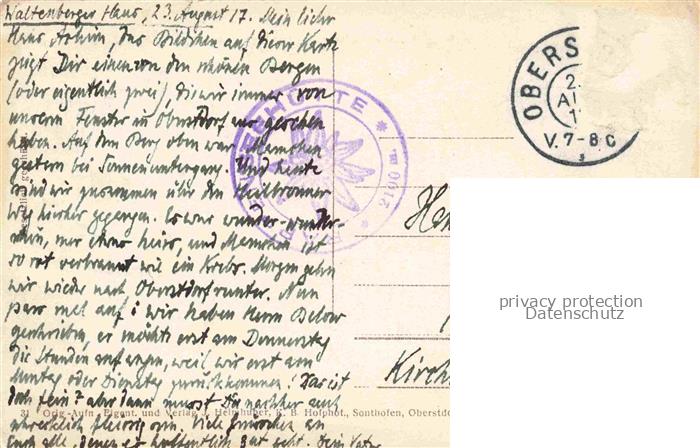 Waltenberger Haus, 23. August 17. Mein lieber
Hans Achim, das Bildchen auf dieser Karte
zeigt Dir einen von den schönen Bergen
(oder eigentlich zwei), die wir immer von
unserem Fenster in Oberstdorf aus gesehen
haben. Auf dem Berg oben war Mamchen
gestern bei Sonnenuntergang. Und heute
sind wir zusammen über den Heilbronner
Weg hierher gegangen. Es war wunder-wunder-
schön, nur etwas heiss, und Mamchen ist
so rot verbrannt wie ein Krebs. Morgen gehn
wir wieder nach Oberstdorf runter. Nun
pass mal auf: wir haben Herrn Below
geschrieben, er möchte erst am Donnerstag
die Stunden anfangen, weil wir erst am
Montag oder Dienstag zurückkommen! Das ist
doch fein? aber dann musst Du nachher auch
schrecklich fleissig sein. Viele
Euch alle, denen es hoffentlich gut geht. Dein Vater
31 Orig.-Aufn. Eigent. und Verlag J. Heimhuber, K. B. Hofphot., Sonthofen, Oberstdo
2100 m
OBERS
2.
AU
1
V. 7-8 C
He
Kirch
privacy protection
Datenschutz